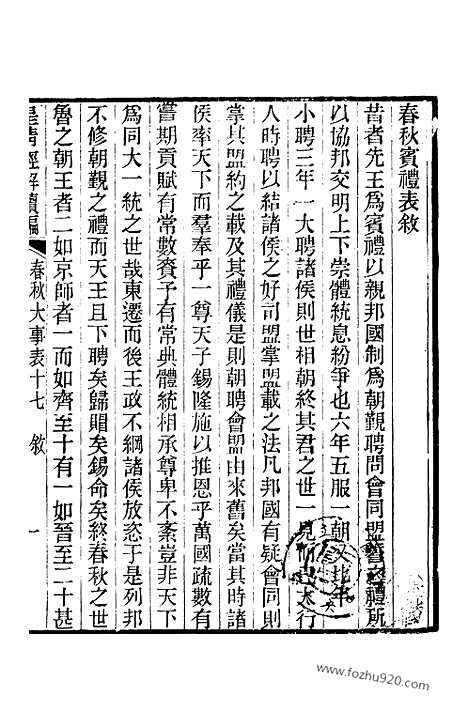 春秋賓禮表敘
昔者先王爲賓禮以親邦國制爲朝覲聘問會同盟誓之禮所
以協邦交明上下崇體統息紛爭也六年五服一朝又比年
小聘三年一大聘諸侯則世相朝終其君之世一見而已大行
人時聘以結諸侯之好司盟掌盟載之法凡邦國有疑會同則
掌其盟約之載及其禮儀是則朝聘會盟由來舊矣當其時諸
侯率天下而羣奉乎一尊天子錫隆施以推恩乎萬國疏數有
嘗期貢賦有常數賚予有常典體統相承尊卑不紊豈非天下
爲同大一統之世哉東遷而後王政不綱諸侯放恣于是列邦
不修朝覲之禮而天王且下聘矣歸賵矣錫命矣終春秋之世
魯之朝王者二如京師者一而如齊至十有一如晉至二十甚
皇清經解續編
春秋大事表十七 敘
一
www.fozhu920.com